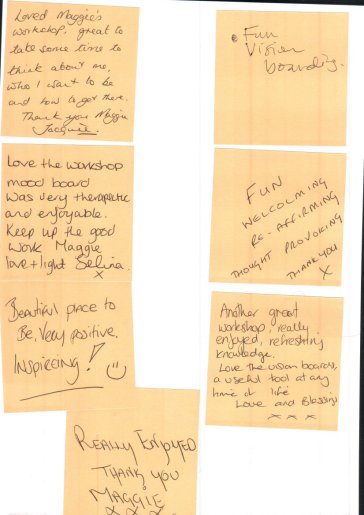 Loved Maggie's
workshop, great to
take some time to
think about me,
who I want to be
and how to get there.
Thank you Maggie
Jacquie.
Love the workshop
mood board
was very therapeutic
and enjoyable.
Keep up the good
work Maggie
love + light Selina.
x
Beautiful place to
Be, Very positive.
INSPIREING! ☺
REALLY ENJOYED
THANK YOU
MAGGIE
x x x
• Fun
Vision
boarding.
FUN
WELCOLMING
RE-AFFIRMING
THOUGHT PROVOKING
THANK YOU
X
Another great
workshop, really
enjoyed, refreshing
knowledge.
Love the vision boards,
a useful tool at any
time of life
Love and Blessings
x x x